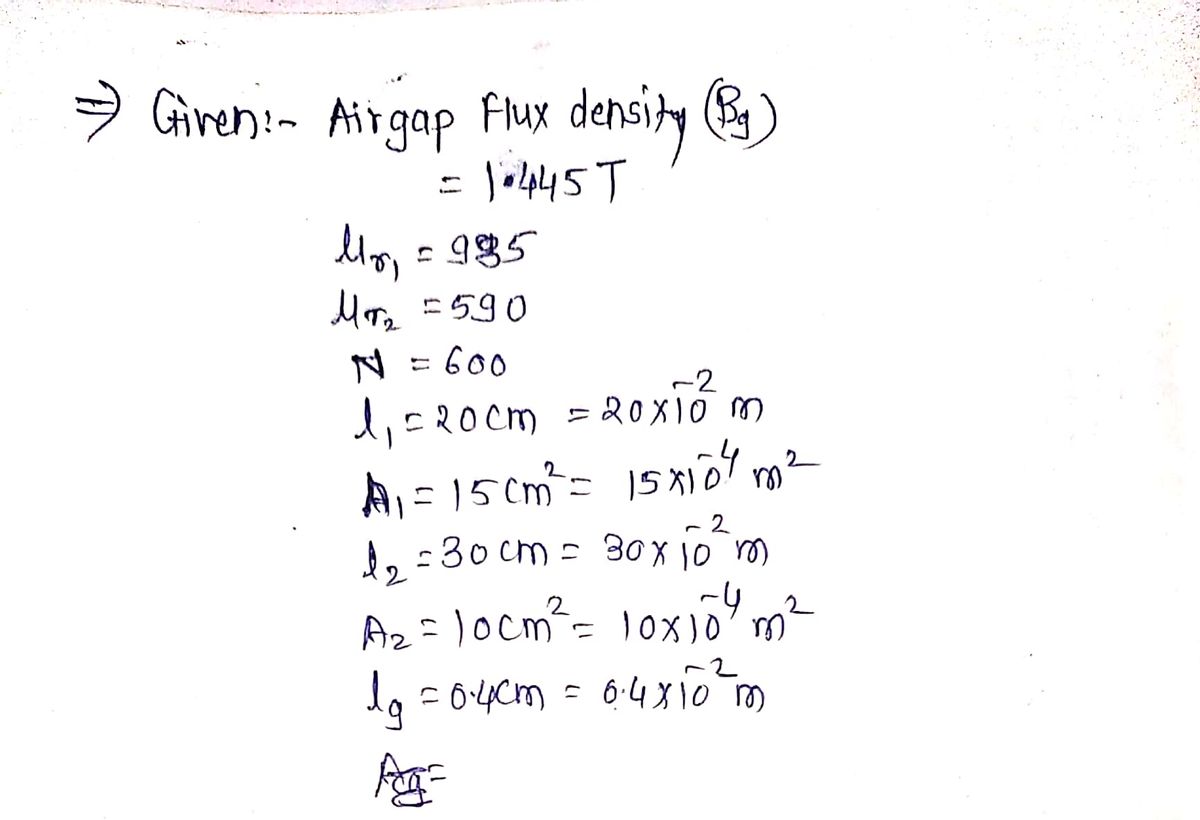 ⇒ Given:- Airgap flux density (Bg)
= 1.445 T
μr₁ = 985
μr₂ = 590
N = 600
l₁ = 20cm = 20×10⁻² m
A₁ = 15cm² = 15×10⁻⁴ m²
l₂ = 30cm = 30×10⁻² m
A₂ = 10cm² = 10×10⁻⁴ m²
lg = 0.4cm = 0.4×10⁻² m